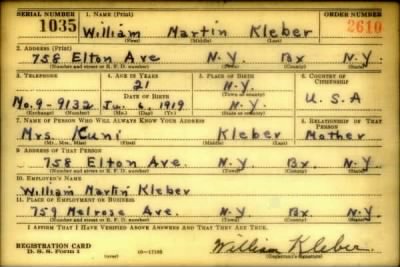 SERIAL NUMBER 1. NAME (Print) ORDER NUMBER
1035 William Martin Kleber 2610
(First) (Middle) (Last)
2. ADDRESS (Print)
758 Elton Ave N.Y. Bx N.Y.
(Number and street or R. F. D. number) (Town) (County) (State)
3. TELEPHONE 4. AGE IN YEARS 5. PLACE OF BIRTH 6. COUNTRY OF CITIZENSHIP
21 N.Y.
DATE OF BIRTH
Mo. 9-9132 6, 1919 N.Y. U.S.A
(Exchange) (Number) (Mo.) (Day) (Yr.) (State or country)
7. NAME OF PERSON WHO WILL ALWAYS KNOW YOUR ADDRESS 8. RELATIONSHIP OF THAT PERSON
Mrs. Kuni Kleber Mother
(Mr., Mrs., Miss) (First) (Middle) (Last)
9. ADDRESS OF THAT PERSON
758 Elton Ave. N.Y. Bx N.Y.
(Number and street or R. F. D. number) (Town) (County) (State)
10. EMPLOYER'S NAME
William Martin Kleber
11. PLACE OF EMPLOYMENT OR BUSINESS
759 Melrose Ave. N.Y. Bx N.Y.
(Number and street or R. F. D. number) (Town) (County) (State)
I AFFIRM THAT I HAVE VERIFIED ABOVE ANSWERS AND THAT THEY ARE TRUE.
REGISTRATION CARD
D. S. S. Form 1 (over) William Kleber